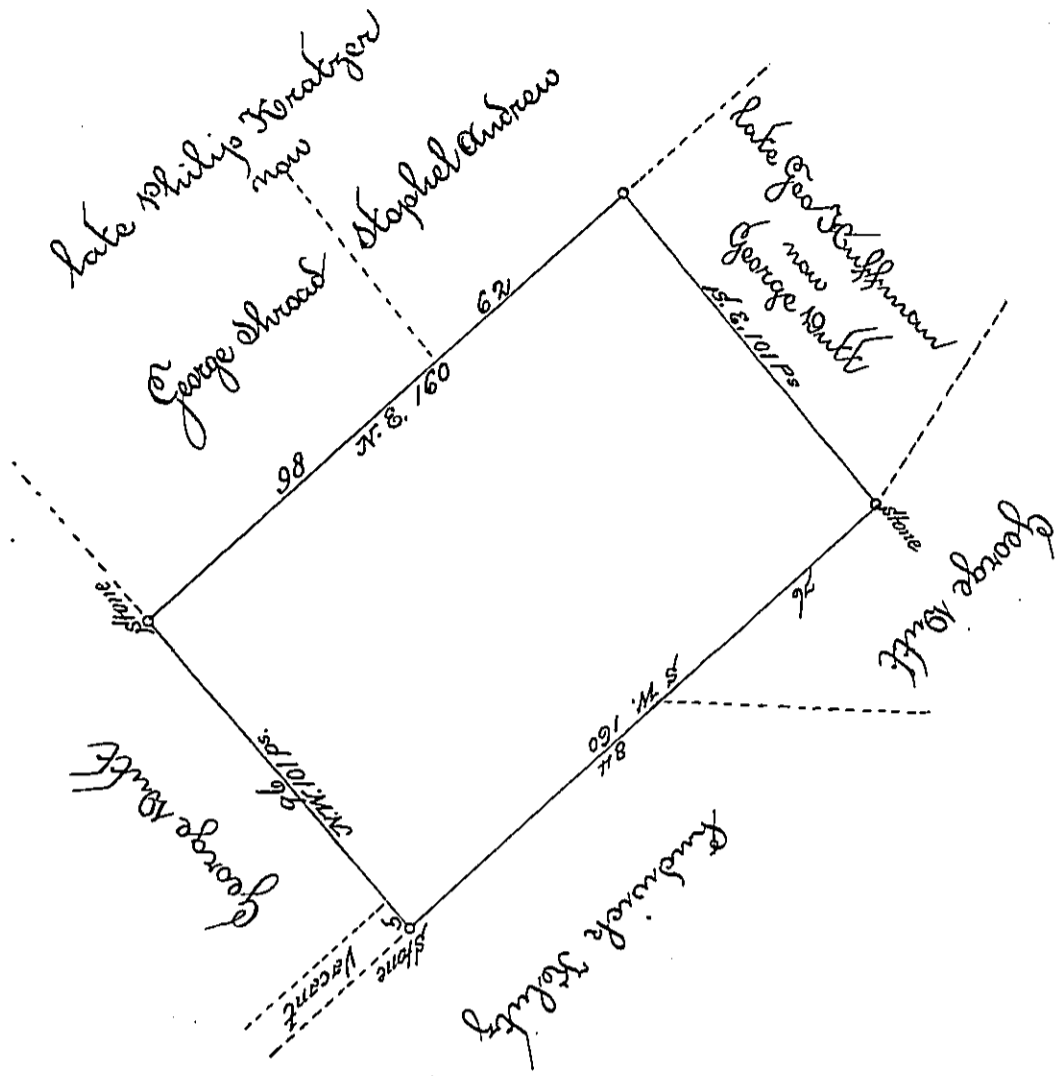 late Philip Kratzer
now
George Shroad
Stophel Andrew
late Geo Huffman
now
George Dutt
62
N. E. 160
98
S. E. 101 ps
Stone
Stone
George Dutt
76
S W. 160
84
N. W. 101 ps.
96
George Dutt
5
Stone
Vacant
Ludwick